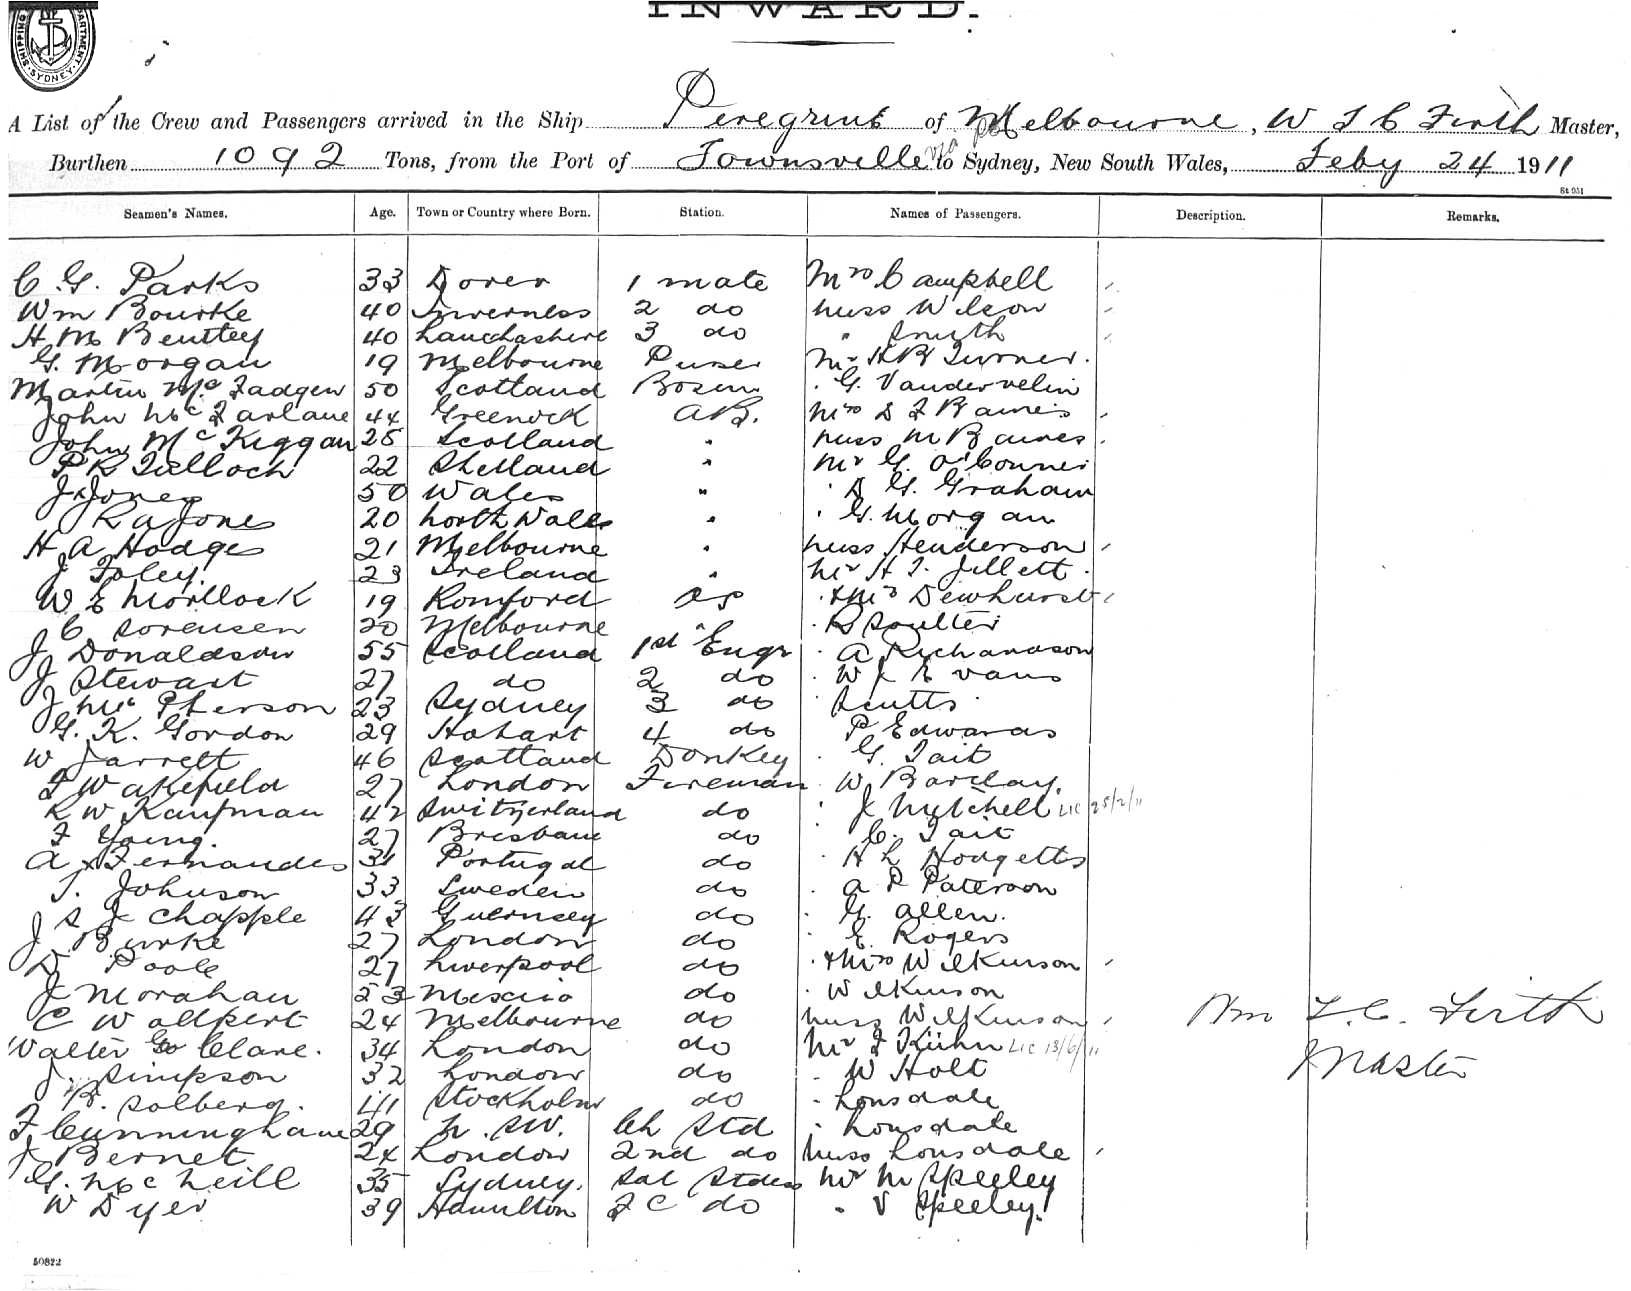 INWARD.
SHIPPING DEPARTMENT SYDNEY
A List of the Crew and Passengers arrived in the Ship Peregrine of Melbourne, W T C Firth Master,
Burthen 1092 Tons, from the Port of Townsville via to Sydney, New South Wales, Feby 24 1911
St 951
Seamen's Names. Age. Town or Country where Born. Station. Names of Passengers. Description. Remarks.
C. G. Parks 33 Dover 1 mate Mrs Campbell
Wm Bourke 40 Inverness 2 do Miss Wilson
H M Bentley 40 Lanchashire 3 do " Smyth
G. Morgan 19 Melbourne Purser Mr H B Turner.
Martin McFadgen 50 Scotland Bosun . G. Vandervelin
John McFarlane 44 Greenock AB. Mrs D F Baines
John McKiggan 28 Scotland " Miss M Baines
P R Tulloch 22 Shetland " Mr G. O'Conner
J. Jones 50 Wales " . D G. Graham
R A Jones 20 North Wales " . G. Morgan
H A Hodges 21 Melbourne " Miss Henderson
J Foley. 23 Ireland " Mr H. T. Jillett.
W E Morllock 19 Romford OS . & Mrs Dewhurst
J C Sorensen 20 Melbourne " . B Soulter
J Donaldson 55 Scotland 1st Engr . A Richardson
J Stewart 27 do 2 do . W J E Vans
J McPherson 23 Sydney 3 do . Scutts
G. K. Gordon 29 Hobart 4 do P Edwards
W Jarrett 46 Scotland Donkey . G. Tait
F Wakefield 27 London Fireman . W Barclay.
R W Kaufman 42 Switzerland do . J Mitchell LIC 25/2/11
F Young. 27 Brisbane do . C. Tait
A Fernandes 31 Portugal do . H L Hodgetts
T. Johnson 33 Sweden do . A P Paterson
J S J Chapple 43 Guernsey do . G. Allen.
J Burke 27 London do . E. Rogers
D Poole 27 Liverpool do . & Mrs Wilkinson
J Morahan 23 Mexico do . Wilkinson
C Wallpert 24 Melbourne do Miss Wilkinson
Walter Go Clare. 34 London do Mr F Kühn LIC 13/6/11
J. Simpson 32 London do . W Holt
B. Solberg. 41 Stockholm do . Lonsdale
F Cunningham 29 N. SW. Ch Std . Lonsdale
J Bernet 24 London 2nd do Miss Lonsdale
G. McNeill 35 Sydney. Sal Stdess Mr M Speeley
W Dyer 39 Hamilton F C do . V Speeley.
Wm T. C. Firth
Master
50822